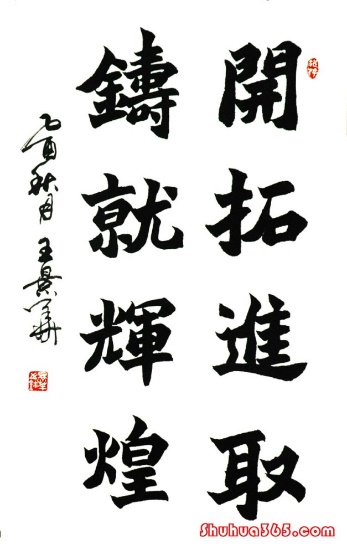 開拓進取
鑄就輝煌
乙酉秋月王景華
Shuhua365.com